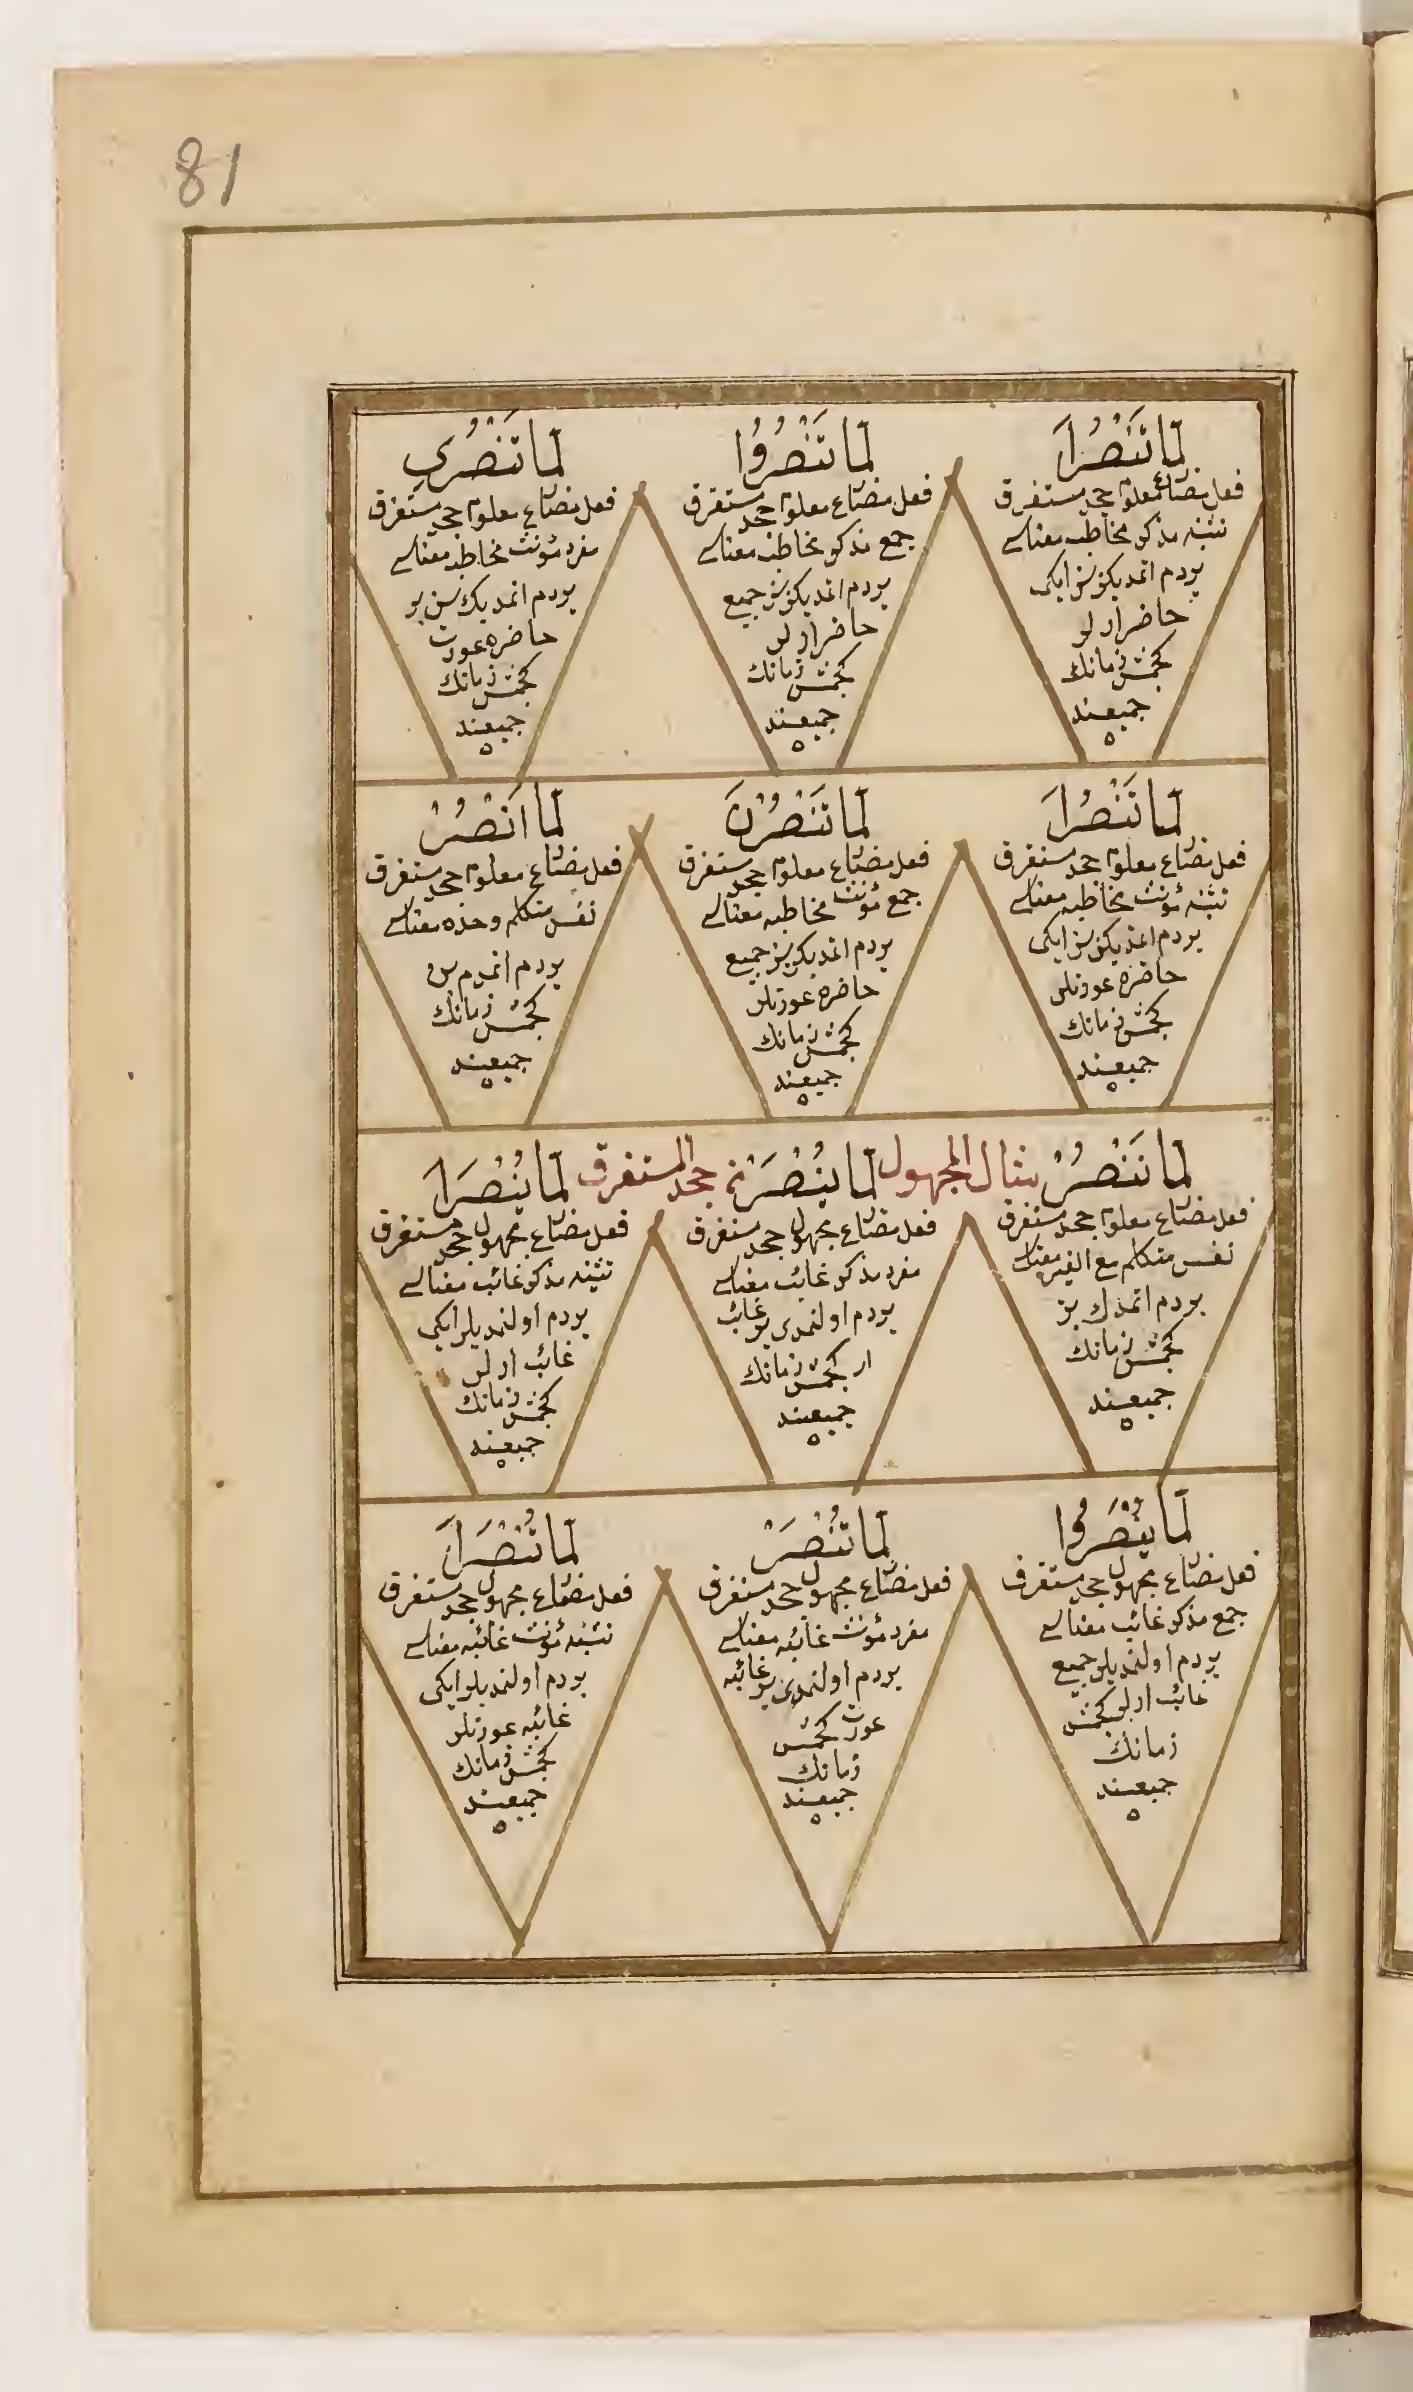 81
لَمَّا تَنْصُرَا
فعل مضارع معلوم جحد مستغرق
تثنیه مذكر مخاطب معناسى
يردم اتمديكز سز ايكى
حاضر ار لر
كچمش زمانك
جميعنده
لَمَّا تَنْصُرُوا
فعل مضارع معلوم جحد مستغرق
جمع مذكر مخاطب معناسى
يردم اتمديكز سز جميع
حاضر ار لر
كچمش زمانك
جميعنده
لَمَّا تَنْصُرِى
فعل مضارع معلوم جحد مستغرق
مفرد مؤنث مخاطبه معناسى
يردم اتمديك سن بر
حاضره عورت
كچمش زمانك
جميعنده
لَمَّا تَنْصُرَا
فعل مضارع معلوم جحد مستغرق
تثنيه مؤنث مخاطبه معناسى
يردم اتمديكز سز ايكى
حاضره عورتلر
كچمش زمانك
جميعنده
لَمَّا تَنْصُرْنَ
فعل مضارع معلوم جحد مستغرق
جمع مؤنث مخاطبه معناسى
يردم اتمديكز سز جميع
حاضره عورتلر
كچمش زمانك
جميعنده
لَمَّا اَنْصُرْ
فعل مضارع معلوم جحد مستغرق
نفس متكلم وحده معناسى
يردم اتمدم بن
كچمش زمانك
جميعنده
لَمَّا نَنْصُرْ
فعل مضارع معلوم جحد مستغرق
نفس متكلم مع الغير معناسى
يردم اتمدك بز
كچمش زمانك
جميعنده
مثال المجهول
لَمَّا يُنْصَرْ
فعل مضارع مجهول جحد مستغرق
مفرد مذكر غائب معناسى
يردم اولنمدى بر غائب
ار كچمش زمانك
جميعنده
جحد المستغرق
لَمَّا يُنْصَرَا
فعل مضارع مجهول جحد مستغرق
تثنيه مذكر غائب معناسى
يردم اولنمديلر ايكى
غائب ار لر
كچمش زمانك
جميعنده
لَمَّا يُنْصَرُوا
فعل مضارع مجهول جحد مستغرق
جمع مذكر غائب معناسى
يردم اولنمديلر جميع
غائب ار لر كچمش
زمانك
جميعنده
لَمَّا تُنْصَرْ
فعل مضارع مجهول جحد مستغرق
مفرد مؤنث غائبه معناسى
يردم اولنمدى بر غائبه
عورت كچمش
زمانك
جميعنده
لَمَّا تُنْصَرَا
فعل مضارع مجهول جحد مستغرق
تثنيه مؤنث غائبه معناسى
يردم اولنمديلر ايكى
غائبه عورتلر
كچمش زمانك
جميعنده